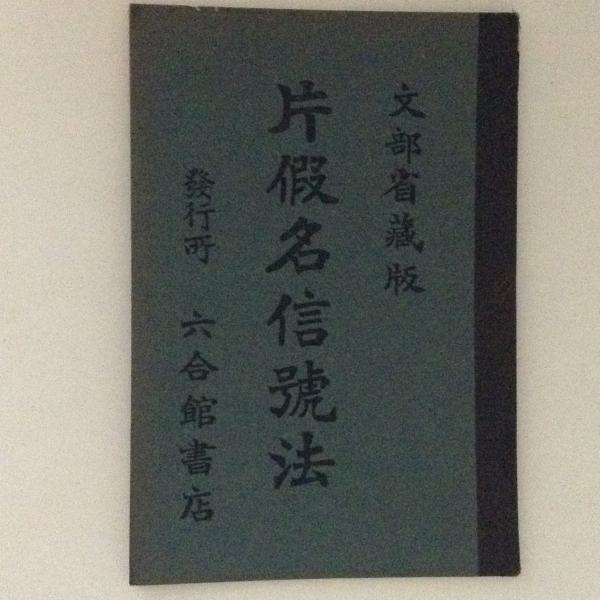 文部省藏版
片假名信號法
發行所 六合館書店